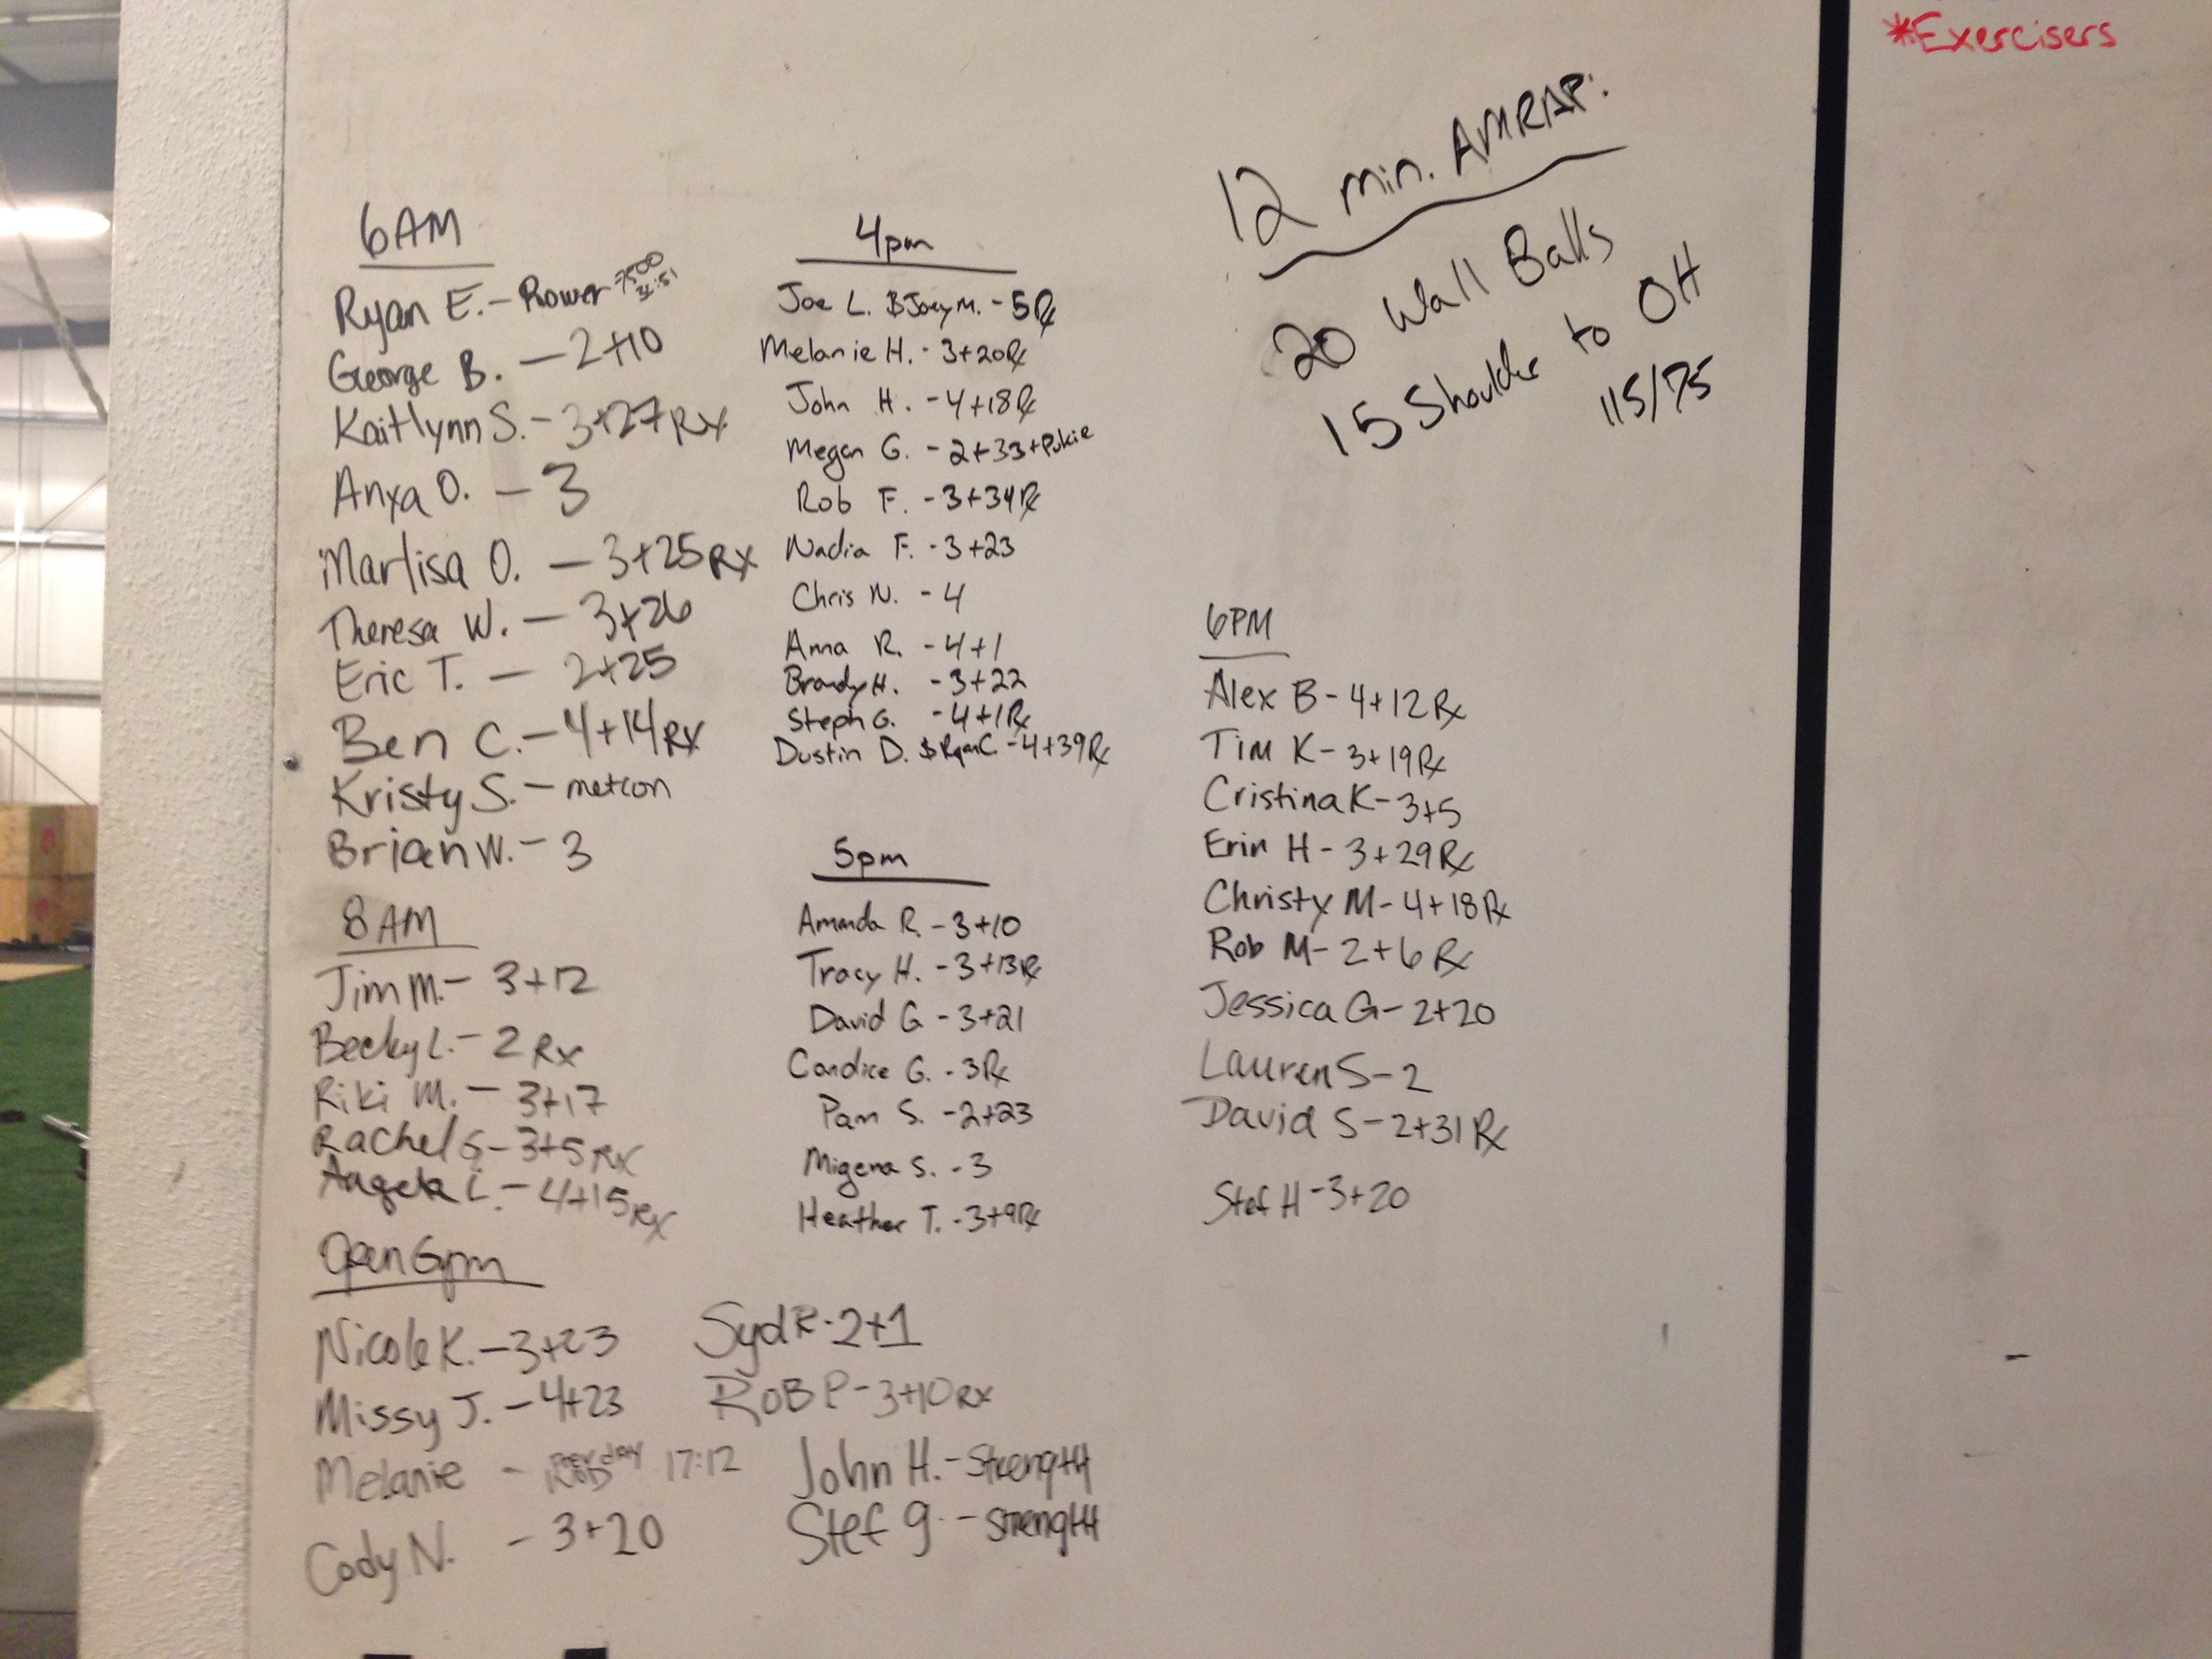 *Exercisers
12 min. AMRAP.
20 Wall Balls
15 Shoulder to OH
115/75
6AM
Ryan E. - Rower 7500
George B. - 2+10
Kaitlynn S. - 3+27 RX
Anya O. - 3
Marlisa O. - 3+25 RX
Theresa W. - 3+26
Eric T. - 2+25
Ben C. - 4+14 RX
Kristy S. - metcon
Brian W. - 3
8AM
Jim M. - 3+12
Becky L. - 2 Rx
Riki M. - 3+17
Rachel G - 3+5 RX
Angela L. - 4+15 RX
Open Gym
Nicole K. - 3+23
Missy J. - 4+23
Melanie - 17:12
Cody N. - 3+20
Syd R - 2+1
ROB P - 3+10 RX
John H. - Strength
Stef G - Strength
4pm
Joe L. & Joey M. - 5 Rx
Melanie H. - 3+20 Rx
John H. - 4+18 Rx
Megan G. - 2+33+Pukie
Rob F. - 3+34 Rx
Nadia F. - 3+23
Chris N. - 4
Anna R. - 4+1
Brandy H. - 3+22
Steph G. - 4+1 Rx
Dustin D. & Ryan C - 4+39 Rx
5pm
Amanda R. - 3+10
Tracy H. - 3+13 Rx
David G - 3+21
Candice G. - 3 Rx
Pam S. - 2+23
Migena S. - 3
Heather T. - 3+9 Rx
6PM
Alex B - 4+12 Rx
Tim K - 3+19 Rx
Cristina K - 3+5
Erin H - 3+29 Rx
Christy M - 4+18 Rx
Rob M - 2+6 Rx
Jessica G - 2+20
Lauren S - 2
David S - 2+31 Rx
Stef H - 3+20